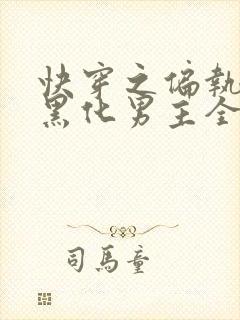 快穿之偏執
黑化男主全
司馬童